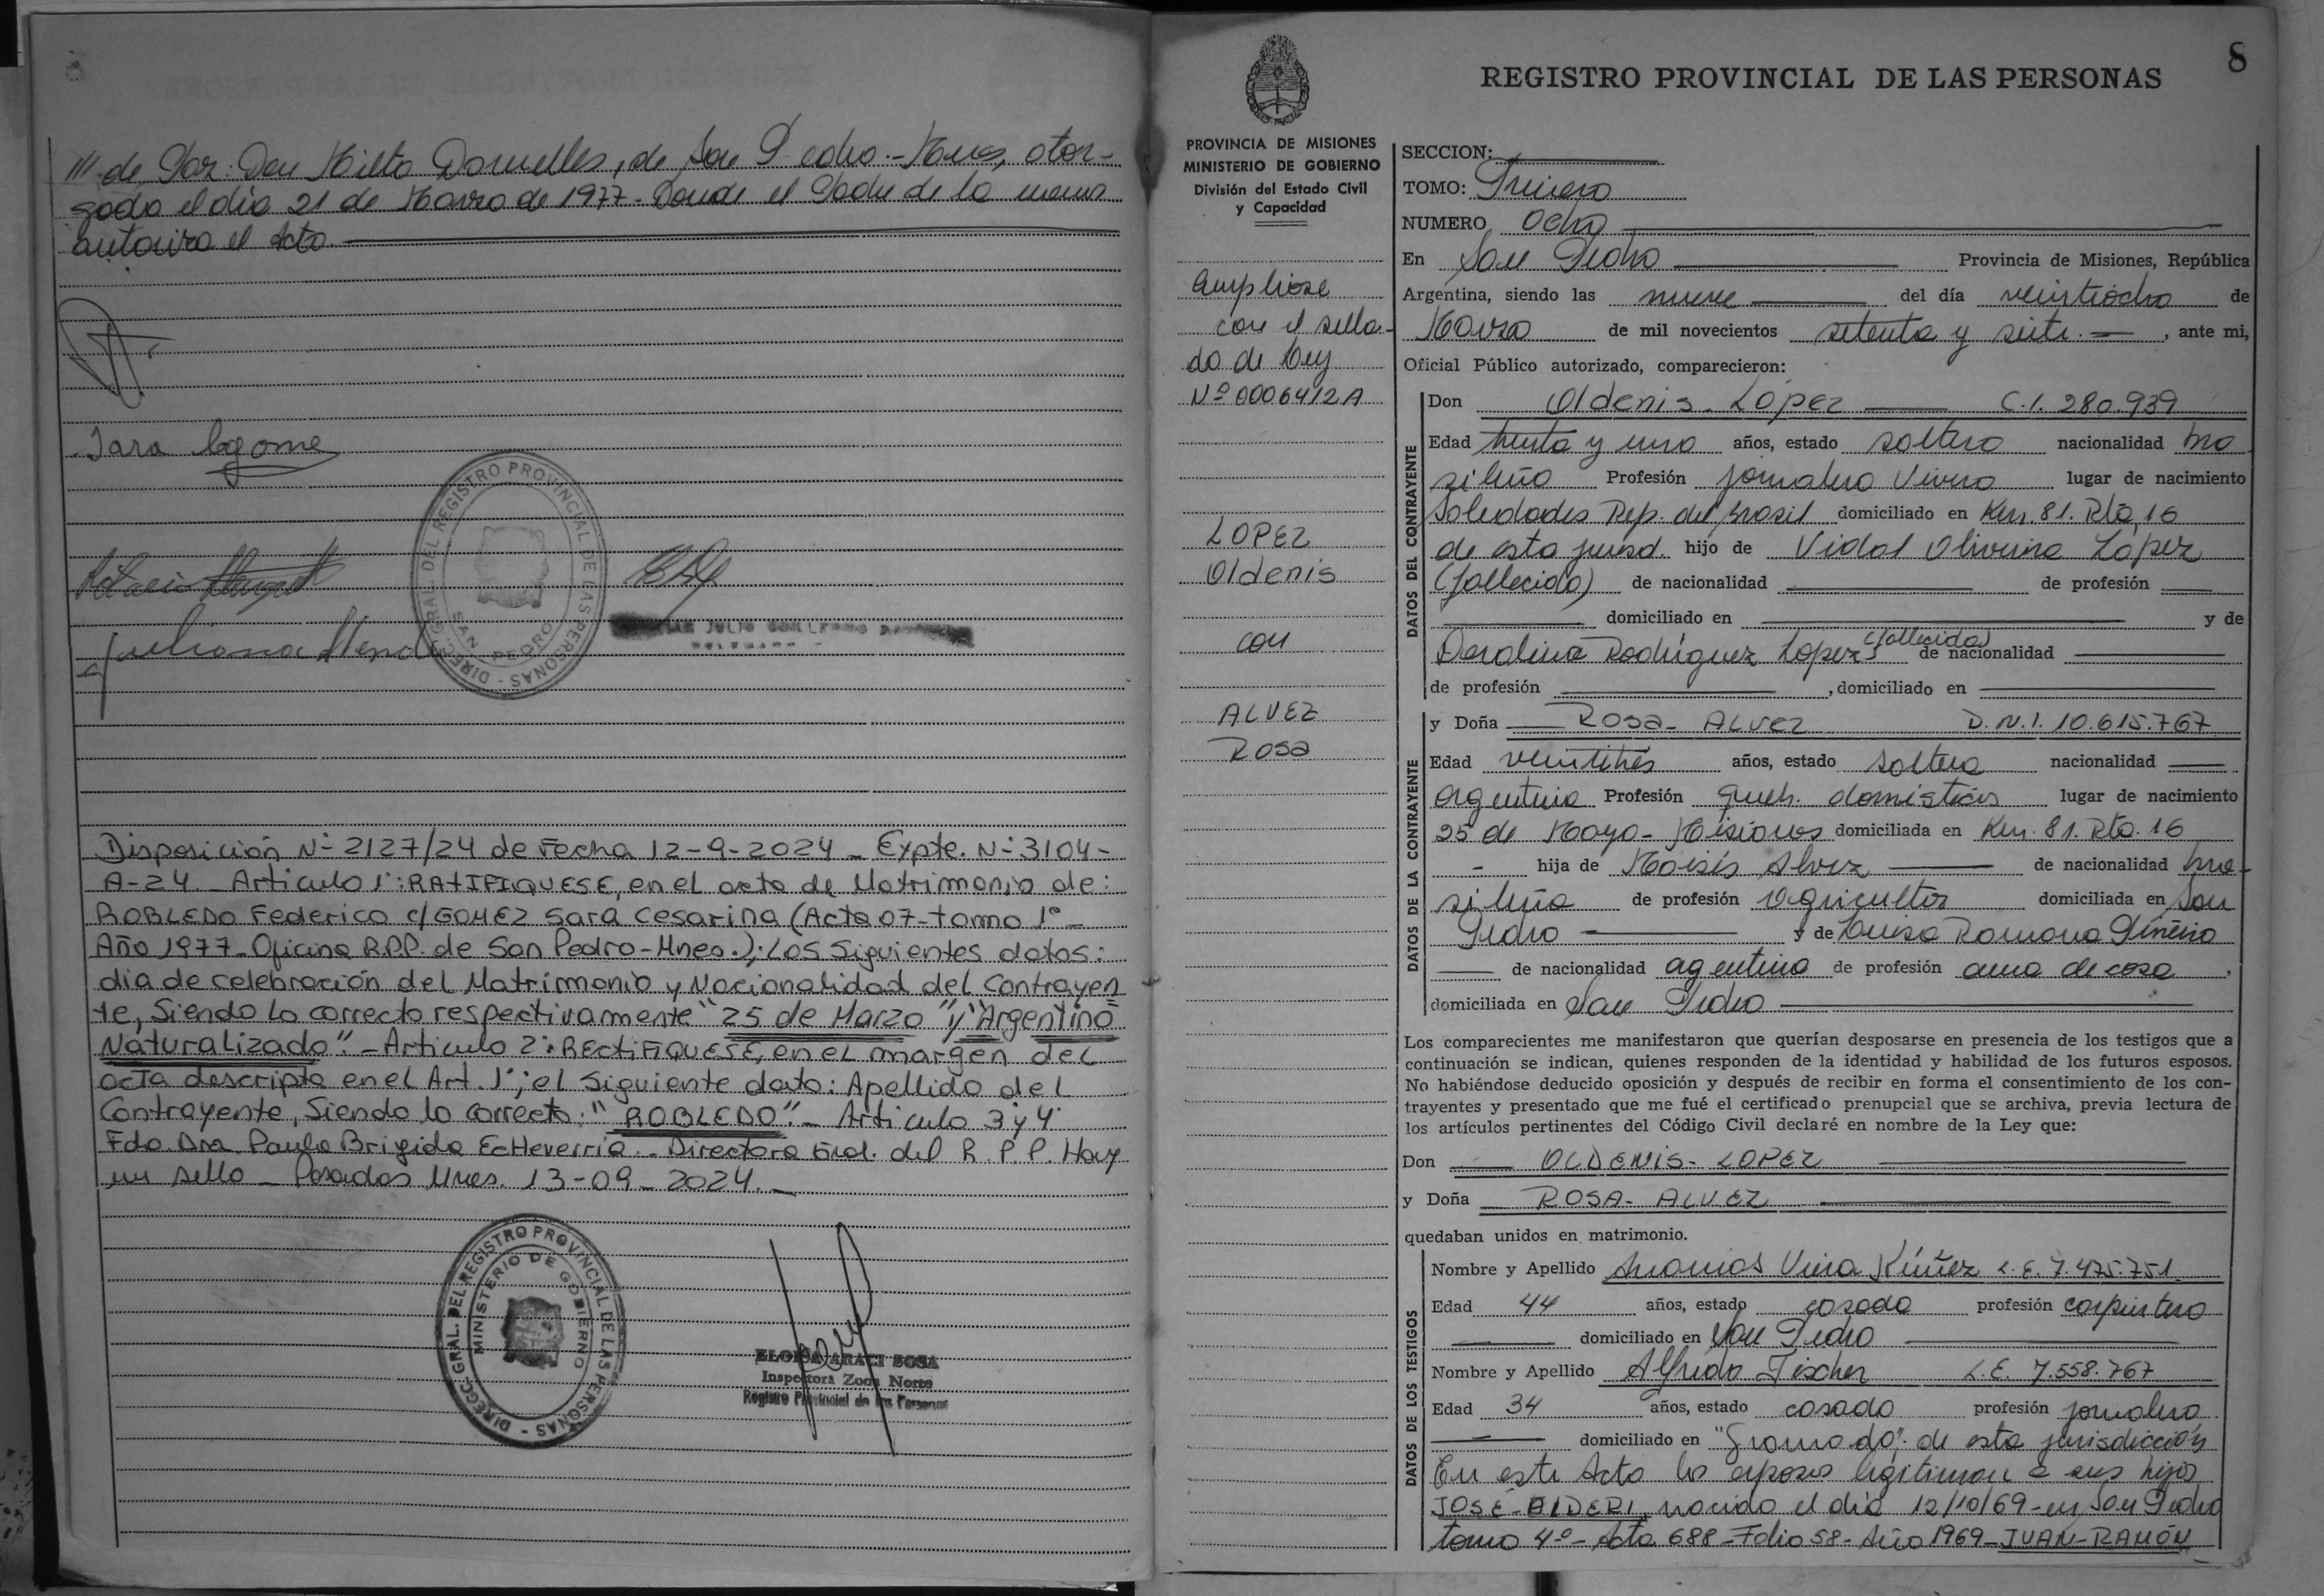 /// de Paz. Don Milto Dornelles, de San Pedro.-Mnes, otor-
gado el día 21 de Marzo de 1977- Donde el Padre de la menor
autoriza el Acto.
Sara C Gomez
Juliana Mend
DIREC. GRAL. DEL REGISTRO PROVINCIAL DE LAS PERSONAS - SAN PEDRO
Disposición Nº 2127/24 de Fecha 12-9-2024 - Expte. Nº 3104-
A-24 - Articulo 1º: RATIFIQUESE, en el acta de Matrimonio de:
ROBLEDO Federico c/ GOMEZ Sara Cesarina (Acta 07-tomo 1º-
Año 1977- Oficina R.P.P. de San Pedro-Mnes.); Los Siguientes datos:
dia de celebración del Matrimonio y Nacionalidad del Contrayen
te, Siendo lo correcto respectivamente "25 de Marzo" y "Argentino
Naturalizado". - Articulo 2º: RECTIFIQUESE, en el margen del
acta descripta en el Art. 1º; el siguiente dato: Apellido del
Contrayente, Siendo lo correcto: "ROBLEDO". - Articulo 3 y 4º
Fdo. Dra Paula Brigida Echeverría - Directora Gral. del R.P.P. Hay
un sello - Posadas Mnes. 13-09-2024. -
DIRECC. GRAL. DEL REGISTRO PROVINCIAL DE LAS PERSONAS -
MINISTERIO DE GOBIERNO
ELOISA ARACI SOSA
Inspectora Zona Norte
Registro Provincial de las Personas
8
REGISTRO PROVINCIAL DE LAS PERSONAS
PROVINCIA DE MISIONES
MINISTERIO DE GOBIERNO
División del Estado Civil
y Capacidad
Ampliose
con el sella-
do de Ley
Nº 0006412A
LOPEZ
Oldenis
con
ALVEZ
Rosa
SECCION:
TOMO: Primero
NUMERO Ocho
En San Pedro Provincia de Misiones, República
Argentina, siendo las nueve del día veintiocho de
Marzo de mil novecientos setenta y siete.- , ante mi,
Oficial Público autorizado, comparecieron:
DATOS DEL CONTRAYENTE
Don Oldenis- López C.I. 280.939
Edad treinta y uno años, estado soltero nacionalidad bra
sileño Profesión jornalero Vivero lugar de nacimiento
Soledades Rep. del Brasil domiciliado en Km. 81. Rta. 16
de esta jurisd. hijo de Vidal Oliveira López
(fallecido) de nacionalidad de profesión
domiciliado en y de
Rodriguez Lopez (fallecida) de nacionalidad
de profesión , domiciliado en
DATOS DE LA CONTRAYENTE
y Doña ROSA- ALVEZ D.N.I. 10.615.767
Edad veintitrés años, estado soltera nacionalidad
argentina Profesión queh. domésticos lugar de nacimiento
25 de Mayo- Misiones domiciliada en Km. 81. Rta. 16
- hija de Moisés Alvez de nacionalidad bra-
sileña de profesión Agricultor domiciliada en San
Pedro y de Luisa Romana Piñeiro
de nacionalidad agentina de profesión ama de casa ,
domiciliada en San Pedro
Los comparecientes me manifestaron que querían desposarse en presencia de los testigos que a
continuación se indican, quienes responden de la identidad y habilidad de los futuros esposos.
No habiéndose deducido oposición y después de recibir en forma el consentimiento de los con-
trayentes y presentado que me fué el certificado prenupcial que se archiva, previa lectura de
los artículos pertinentes del Código Civil declaré en nombre de la Ley que:
Don OLDENIS- LOPEZ
y Doña ROSA- ALVEZ
quedaban unidos en matrimonio.
DATOS DE LOS TESTIGOS
Nombre y Apellido Ananias Viera Núñez L.E. 7.475.751
Edad 44 años, estado casado profesión carpintero
domiciliado en San Pedro
Nombre y Apellido Alfredo Fischer L.E. 7.558.767
Edad 34 años, estado casado profesión jornalero
domiciliado en "Gramado" de esta jurisdicción
En este Acto los esposos legitiman a sus hijos
JOSÉ-ALDERI, nacido el día 12/10/69-en San Pedro
tomo 4º- Acta 688-Folio 58- Año 1969-JUAN-RAMÓN